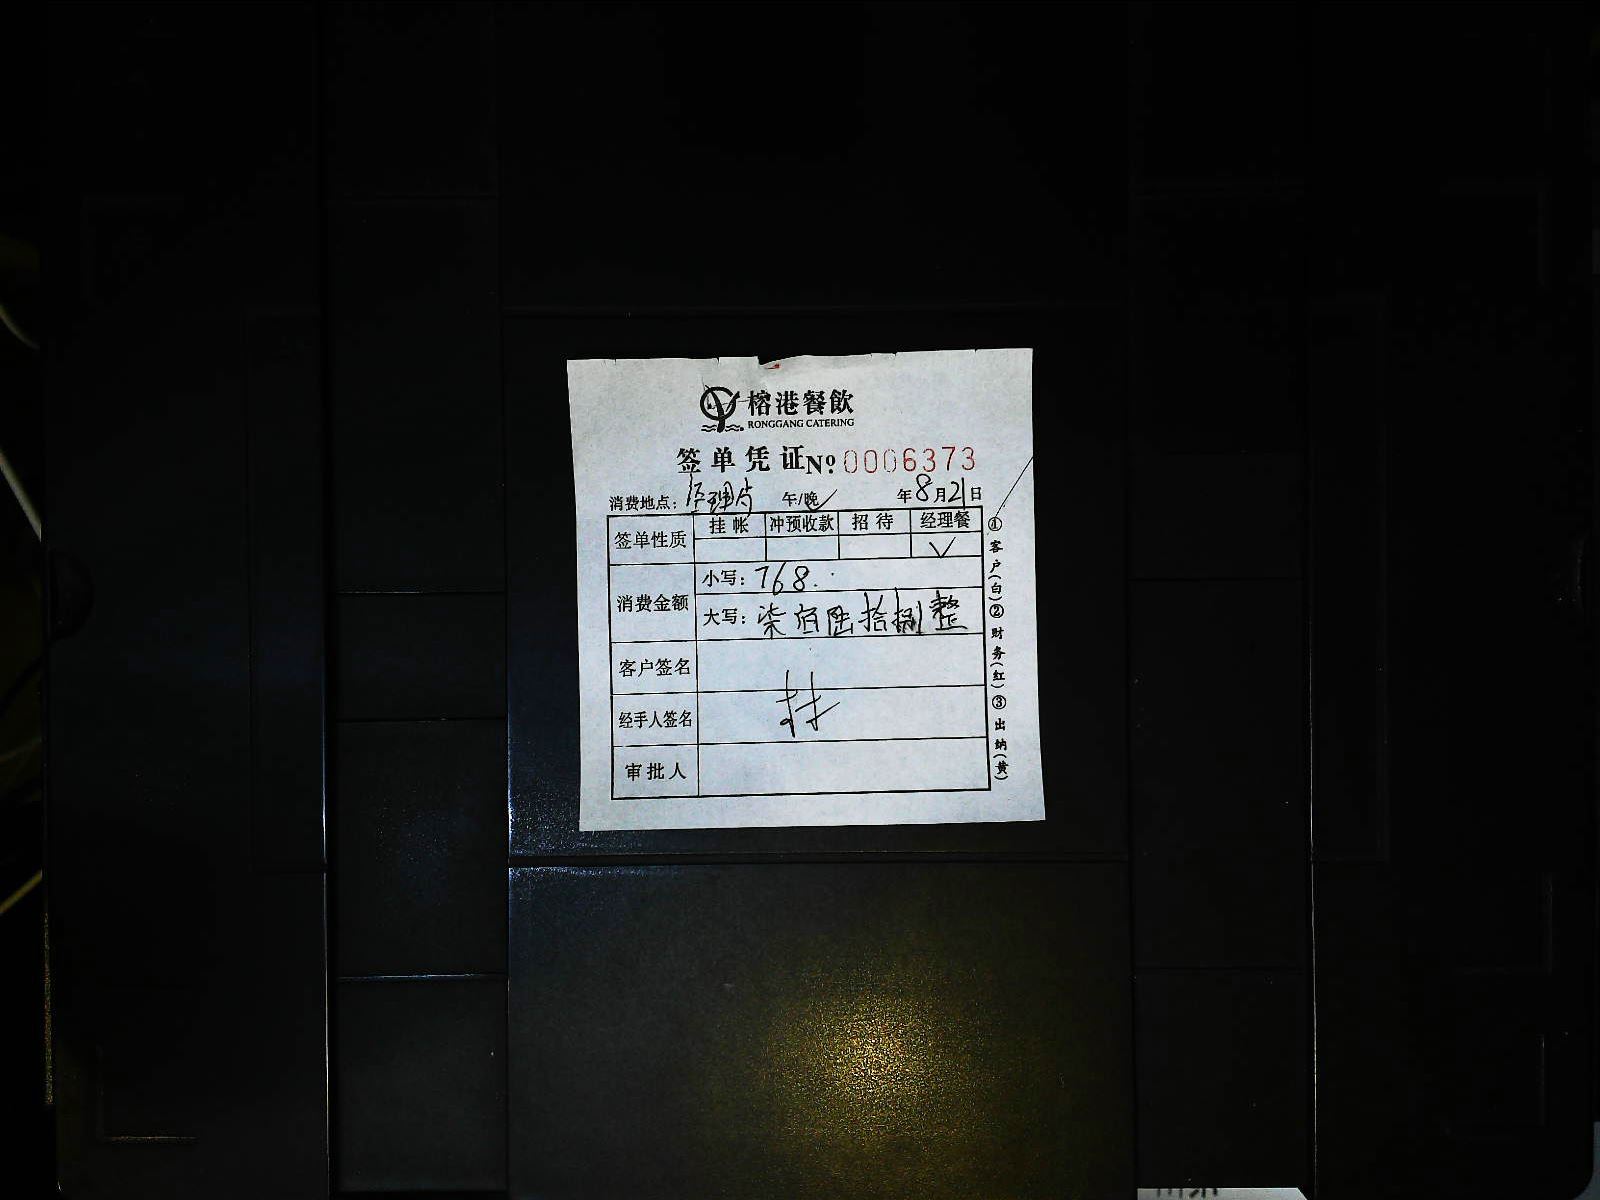 榕港餐飲
RONGGANG CATERING
签单凭证 № 0006373
消费地点：经理 午/晚✓ 年8月21日
签单性质 挂帐 冲预收款 招待 经理餐
✓
消费金额 小写：768.
大写：柒佰陆拾捌整
客户签名
经手人签名
审批人
①客户(白)②财务(红)③出纳(黄)